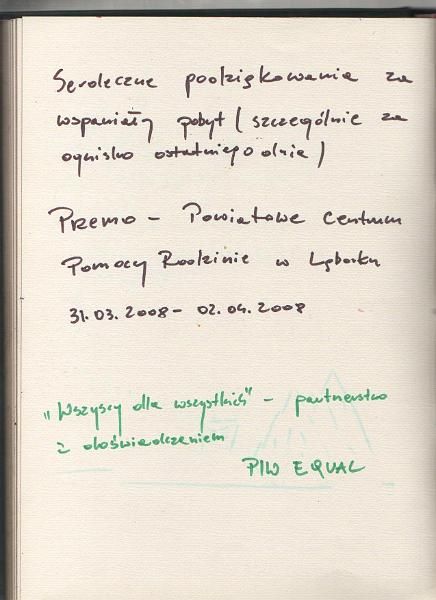 Serdeczne podziękowania za
wspaniały pobyt (szczególnie za
ognisko ostatniego dnia)
Premo - Powiatowe Centrum
Pomocy Rodzinie w Lęborku
31.03.2008 - 02.04.2008
"Wszyscy dla wszystkich" - partnerstwo
z doświadczeniem
PIW EQUAL